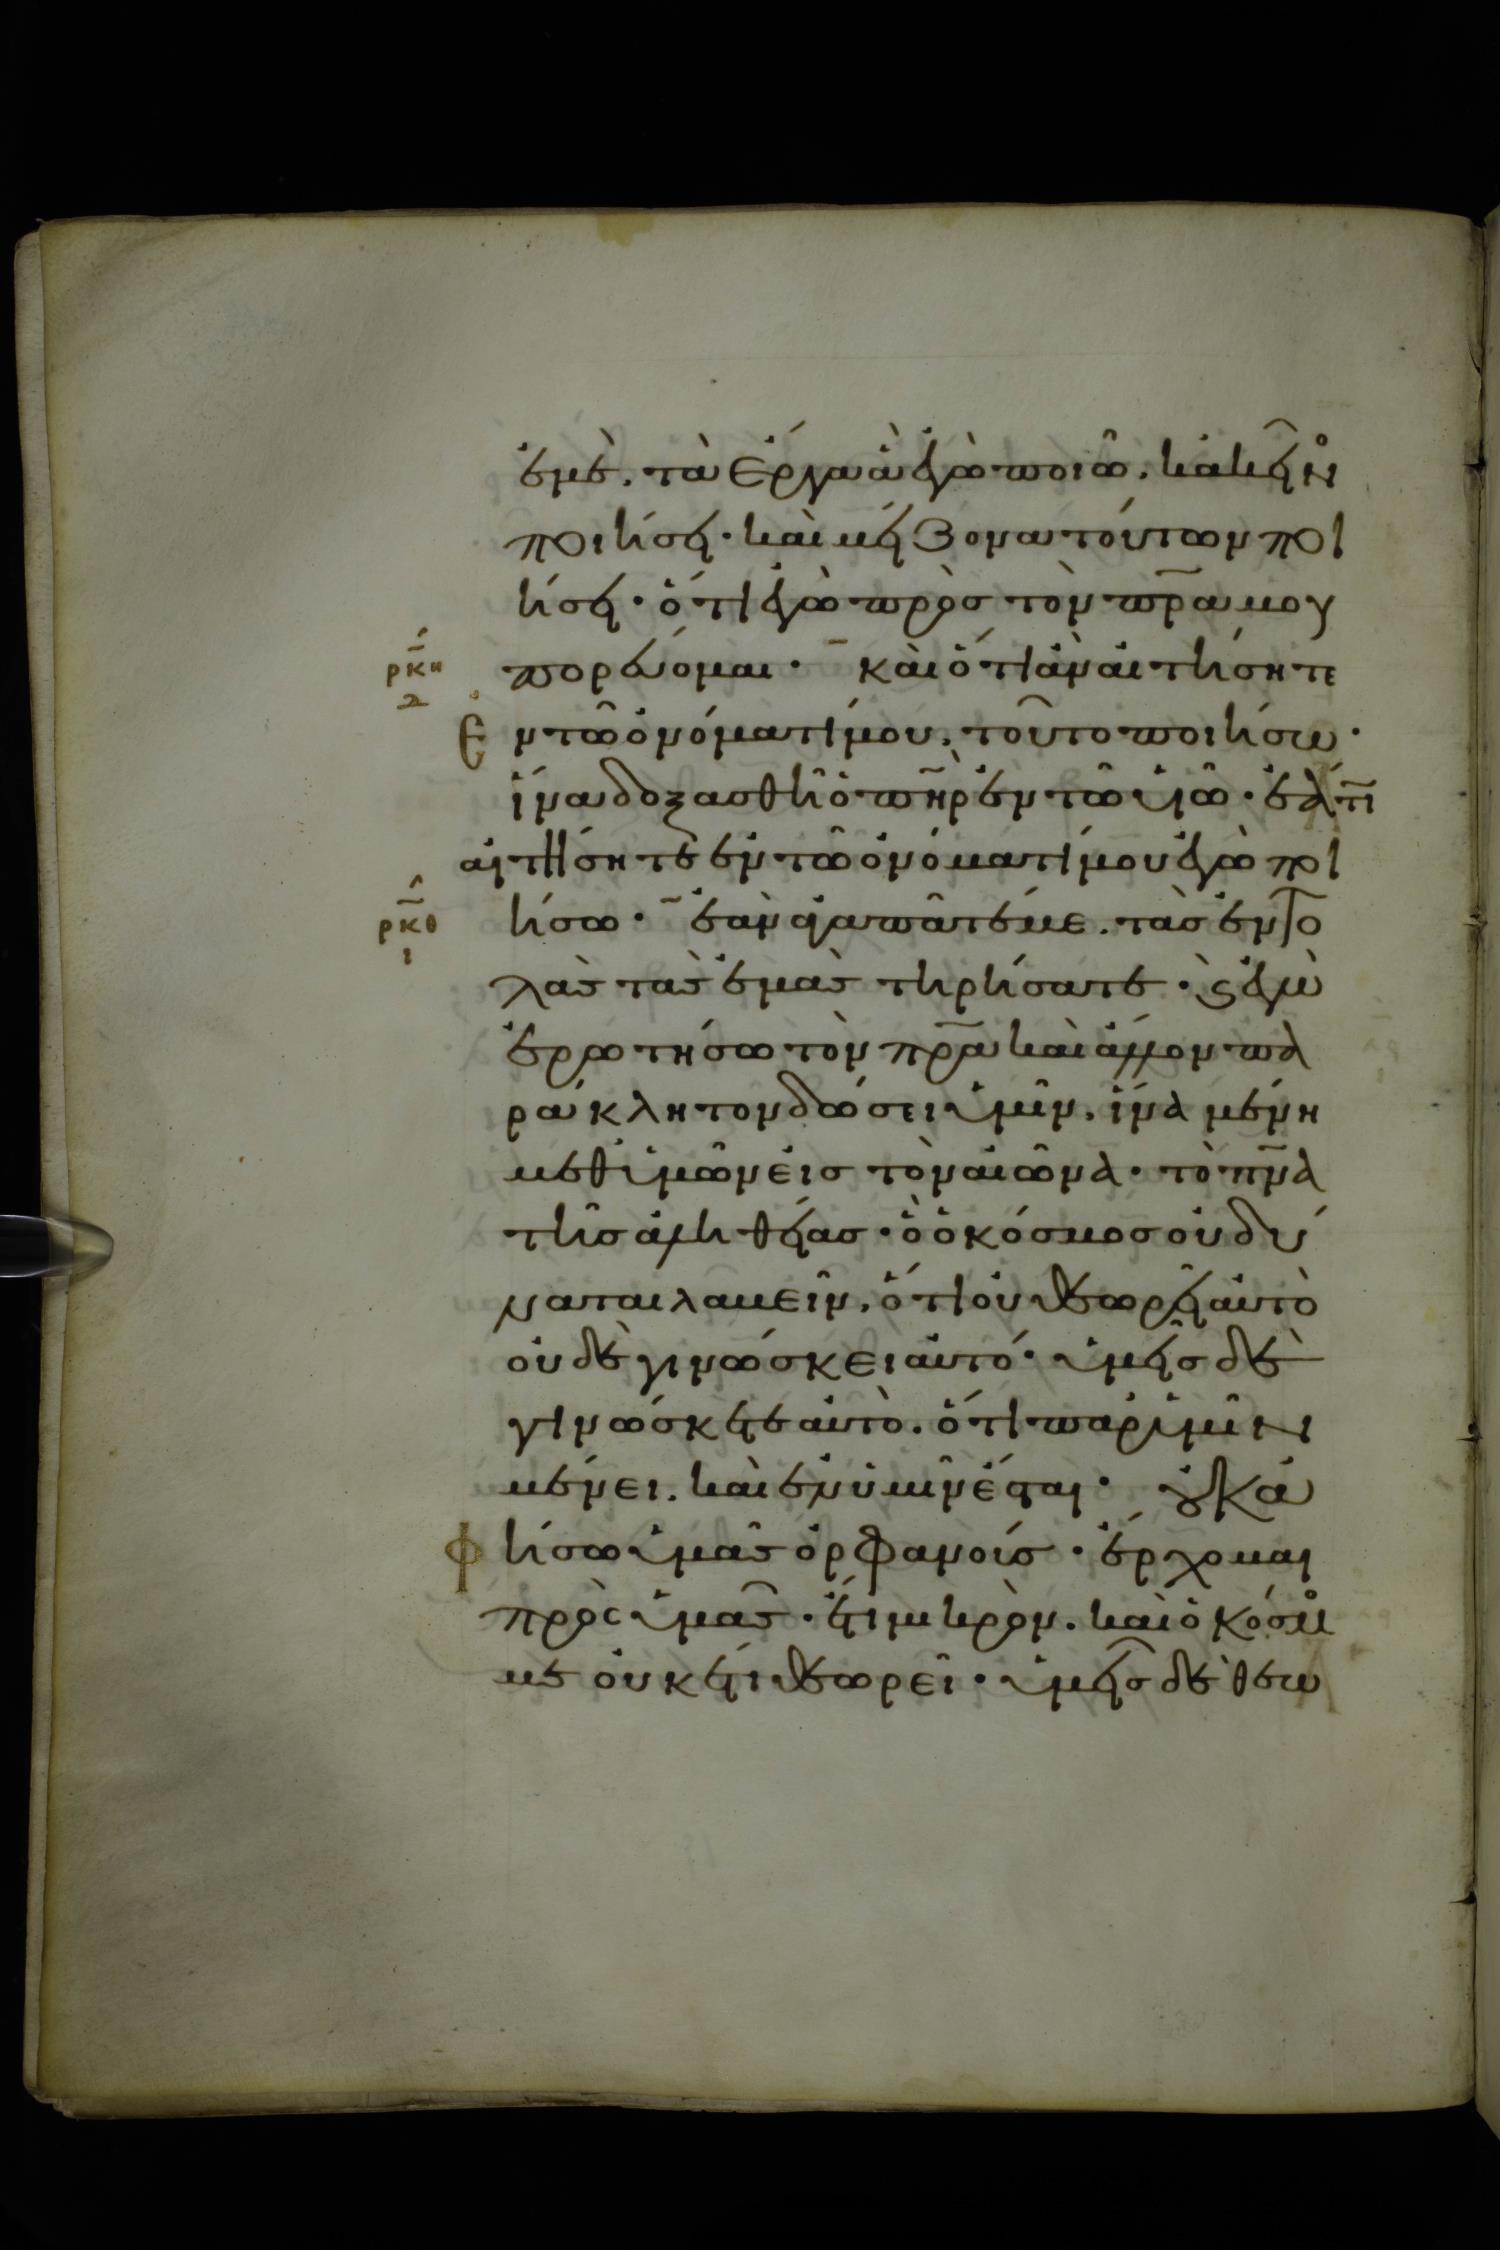 ἐμὲ. τὰ ἔργα ἃ ἐγὼ ποιῶ. κακεῖνο
ποιήσει· καὶ μείζονα τούτων ποι
ήσει· ὅτι ἐγὼ πρὸς τὸν πρ̅α μου
ρκη πορεύομαι· καὶ ὅτι ἀν αἰτήσητε
Ἐν τῶ ὀνόματί μου. τοῦτο ποιήσω·
ἵνα δοξασθῆ ὁ πη̅ρ ἐν τῶ υἱῶ· ἐάν τι
αἰτήσητε ἐν τῶ ὀνόματί μου ἐγὼ ποι
ρκθ ήσω· ἐὰν ἀγαπᾶτέ με. τὰσ ἐντο
ι
λὰσ τὰσ ἐμὰσ τηρήσατε· ϗ ἐγὼ
ἐρωτήσω τὸν πρ̅α καὶ ἄλλον πα
ράκλητον δώσει ὑμῖν. ἵνα μένη
μεθ ὑμῶν εἰσ τὸν αἰῶνα· τὸ πν̅α
τῆσ ἀληθείασ· ὃ ὁ κόσμοσ οὐ δύ
ναται λαβεῖν. ὅτι οὐ θεωρεῖ αὐτὸ
οὐδὲ γινώσκει αὐτό· ὑμεῖσ δὲ
γινώσκετε αὐτὸ. ὅτι παρ ὑμῖν
μένει. καὶ ἐν ὑμῖν ἔσται· οὐκ ἀ
φήσω ὑμᾶσ ὀρφανούσ· ἔρχομαι
πρὸσ ὑμᾶσ· ἔτι μικρὸν. καὶ ὁ κόσμο
με οὐκ έτι θεωρεῖ· ὑμεῖσ δὲ θεω